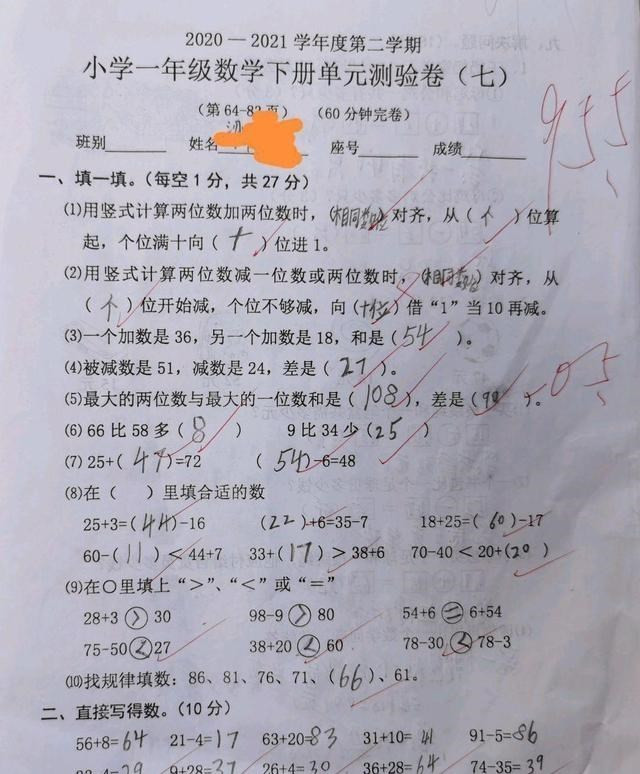 2020—2021学年度第二学期
小学一年级数学下册单元测验卷（七）
（第64-83页） （60分钟完卷）
班别______ 姓名______ 座号______ 成绩______
955
一、填一填。（每空1分，共27分）
⑴用竖式计算两位数加两位数时，（相同数位）对齐，从（个）位算
起，个位满十向（十）位进1。
⑵用竖式计算两位数减一位数或两位数时，（相同数位）对齐，从
（个）位开始减，个位不够减，向（十位）借“1”当10再减。
⑶一个加数是36，另一个加数是18，和是（54）。
⑷被减数是51，减数是24，差是（27）。
⑸最大的两位数与最大的一位数和是（108），差是（）。 -05
⑹ 66比58多（8） 9比34少（25）
⑺ 25+（47）=72 （54）-6=48
⑻在（ ）里填合适的数
25+3=（44）-16 （22）+6=35-7 18+25=（60）-17
60-（11）＜44+7 33+（17）＞38+6 70-40＜20+（20）
⑼在○里填上“>”、“<”或“=”
28+3 > 30 98-9 > 80 54+6 = 6+54
75-50 < 27 38+20 < 60 78-30 < 78-3
⑽找规律填数：86、81、76、71、（66）、61。
二、直接写得数。（10分）
56+8=64 21-4=17 63+20=83 31+10=41 91-5=86
9+28=37 26+4=30 36+28=64 74-35=39